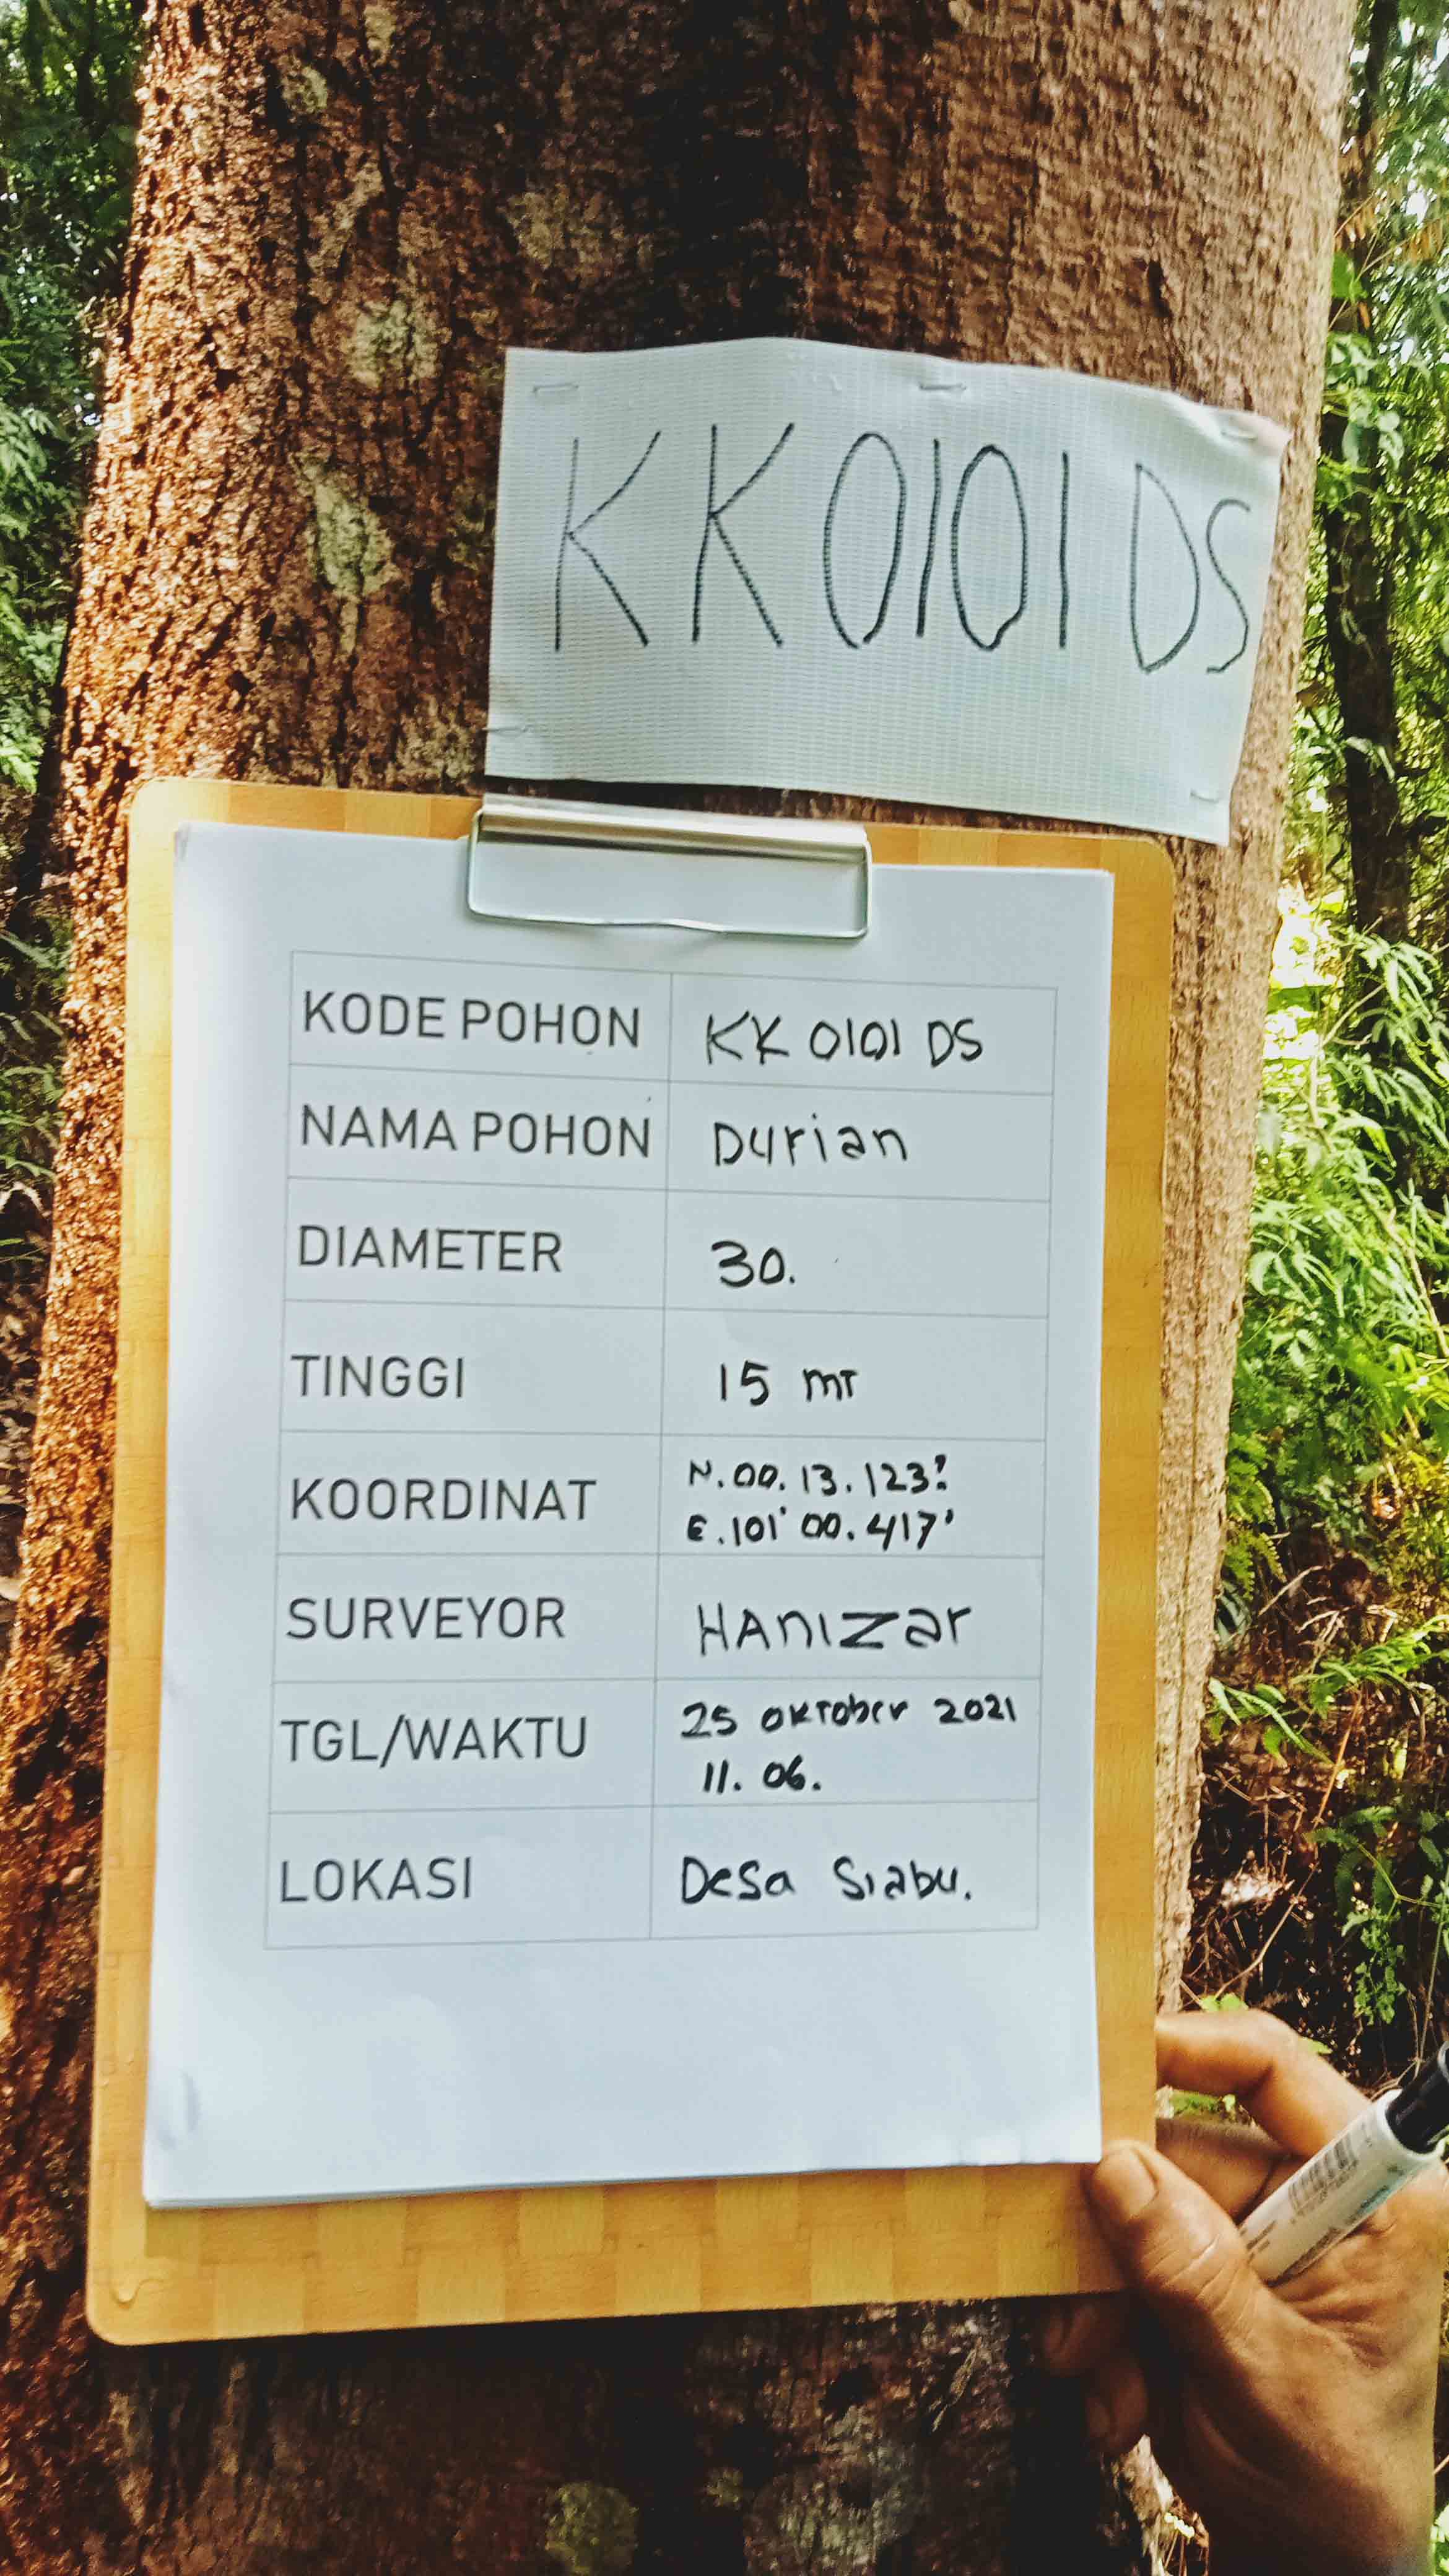 KK0101 DS
KODE POHON KK 0101 DS
NAMA POHON Durian
DIAMETER 30.
TINGGI 15 mT
KOORDINAT N.00.13.123'.
E.101' 00.417'
SURVEYOR HAnIZar
TGL/WAKTU 25 oKTober 2021
11. 06.
LOKASI Desa Siabu.